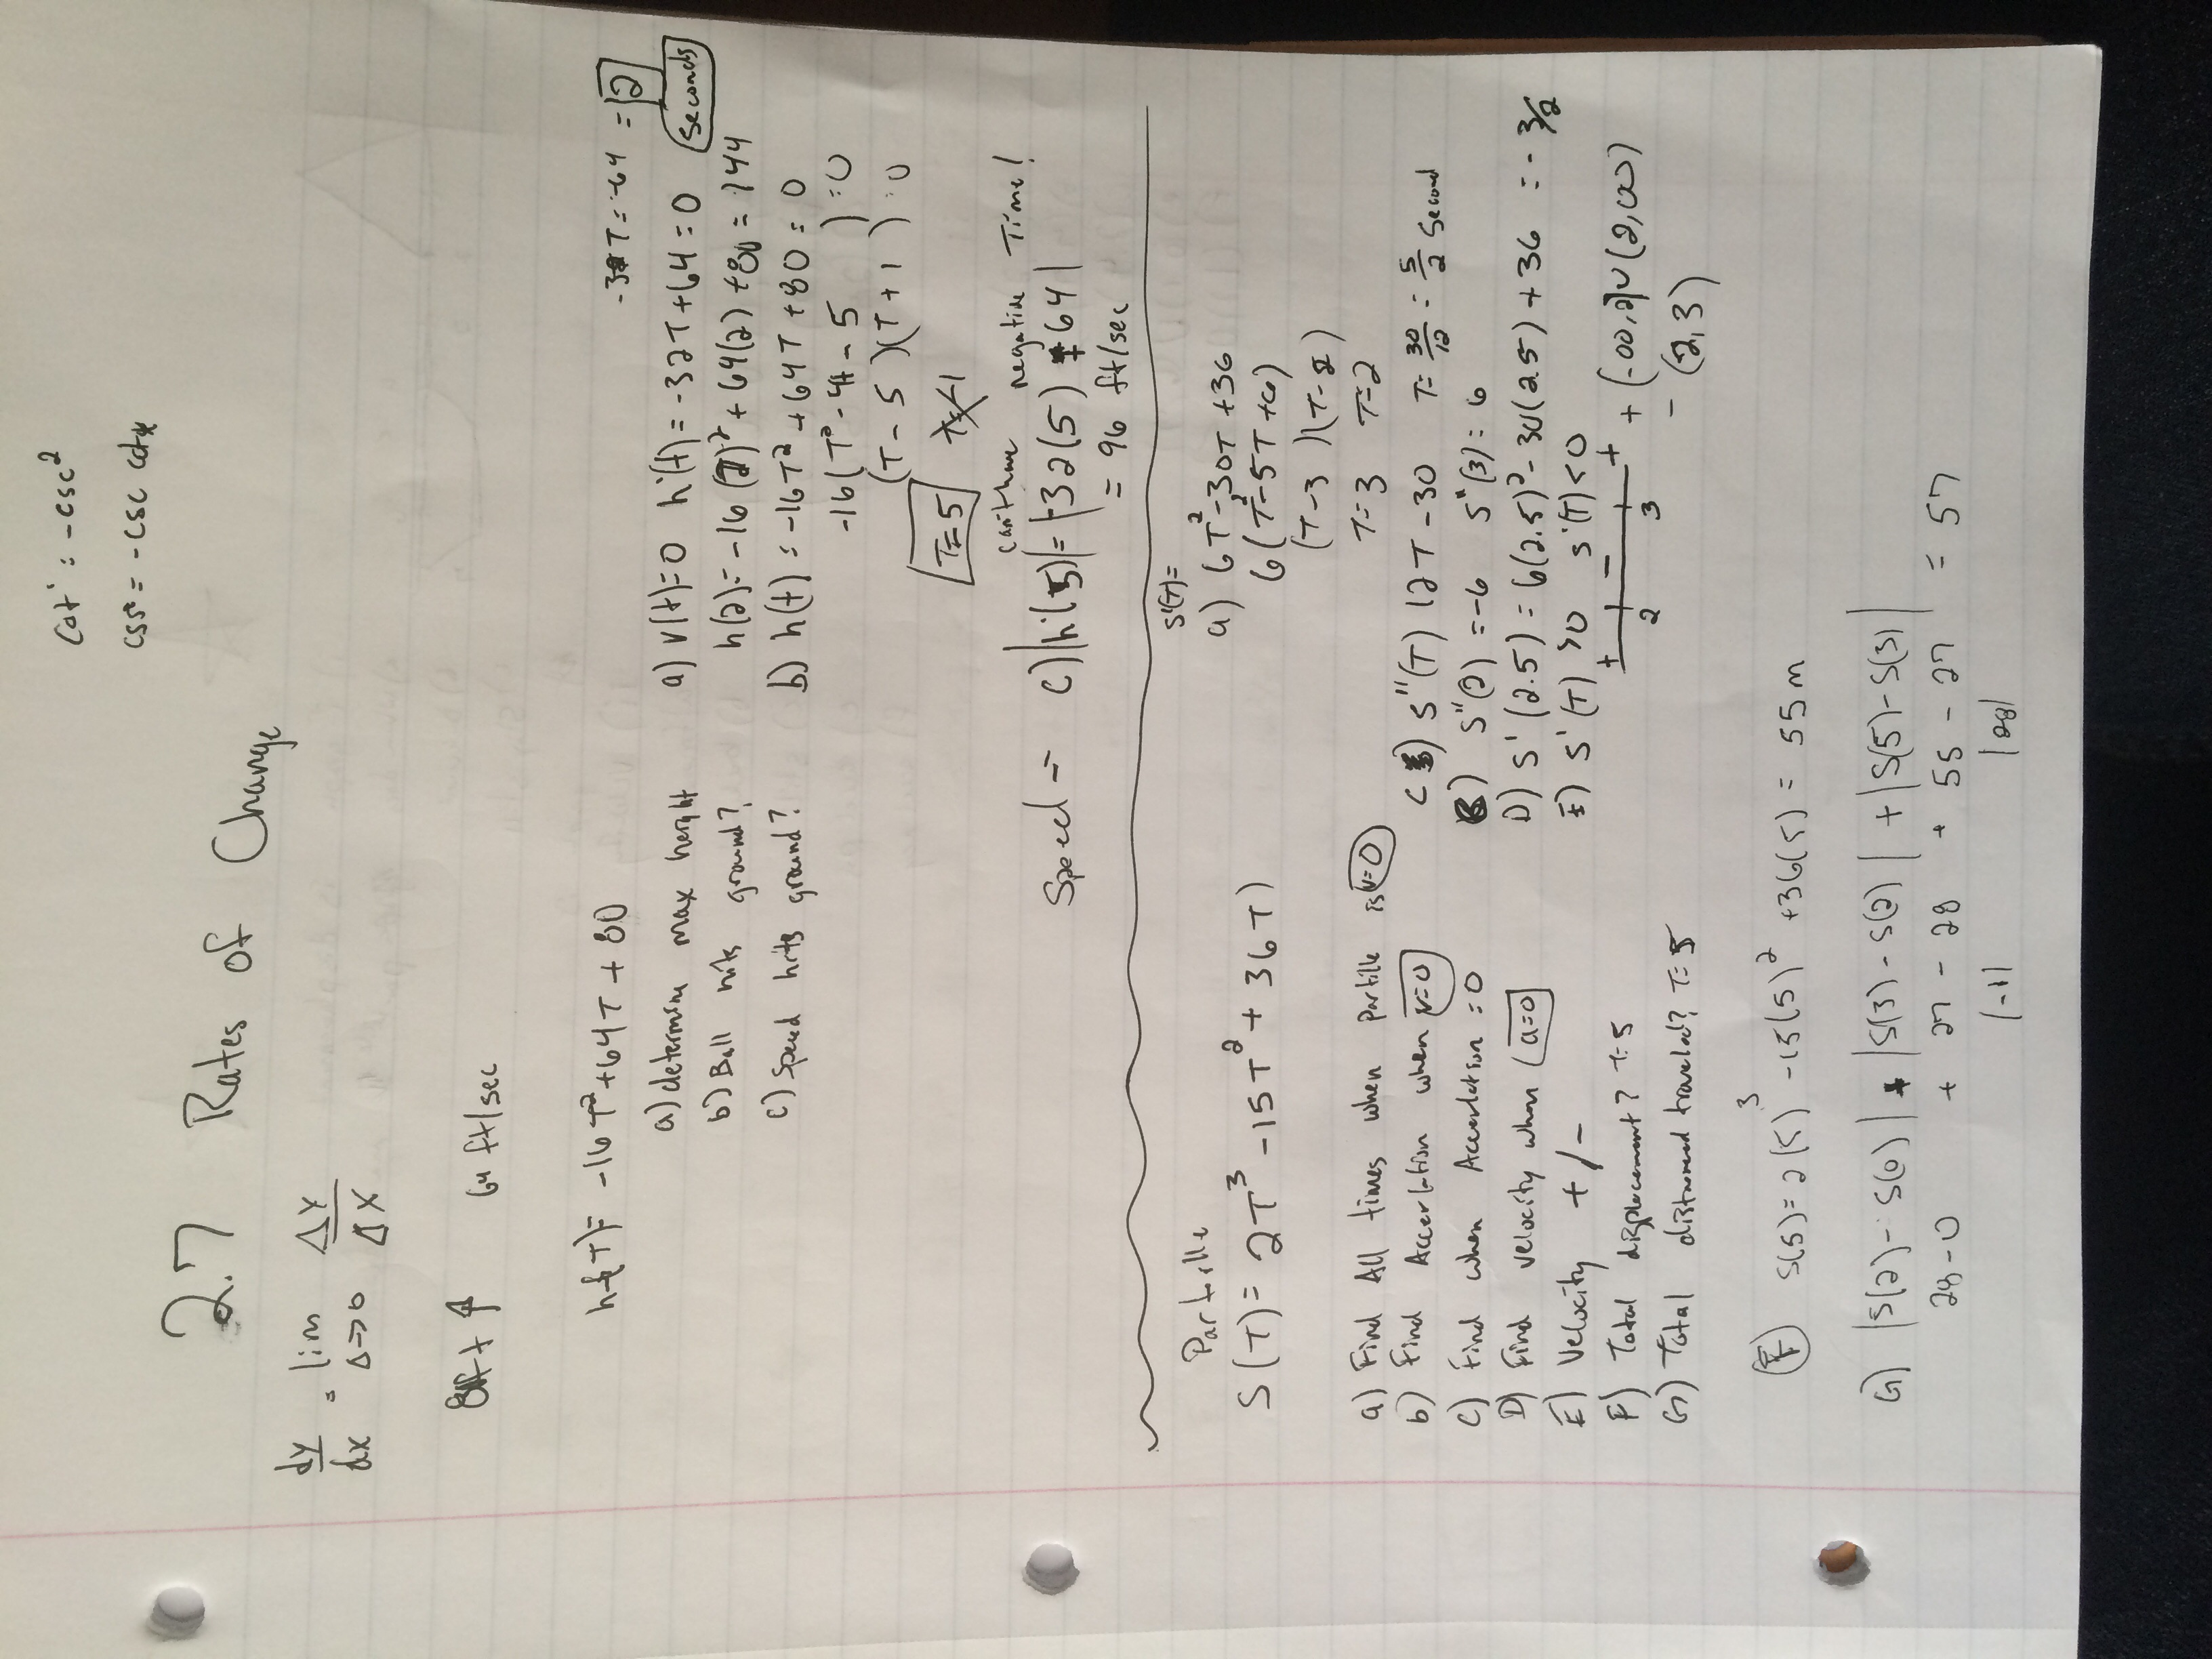 cot' = -csc²
csc = -csc cotx
2.7 Rates of Change
dy/dx = lim Δ→0 ΔY/ΔX
80ft ↑ 64 ft/sec
h(T) = -16T²+64T + 80
a) determin max height
b) Ball hits ground?
c) Speed hits ground?
-32T = -64 = 2
seconds
a) v(t)=0 h'(t) = -32T+64 = 0
h(2) = -16(2)² + 64(2) + 80 = 144
b) h(t) = -16T² + 64T + 80 = 0
-16(T² - 4t - 5 ) = 0
(T - 5)(T + 1) = 0
T=5 T=-1
can't have negative Time!
Speed → c) |h'(5)| = |-32(5) + 64|
= 96 ft/sec
Particle
S(T) = 2T³ - 15T² + 36T
a) Find All times when particle is v=0
b) Find Accerlation when v=0
c) Find when Accerlation = 0
D) Find velocity when a=0
E) Velocity + / -
F) Total displacement? t=5
G) Total distance traveled? T=5
S'(T) =
a) 6T² - 30T + 36
6(T² - 5T + 6)
(T - 3)(T - 2)
T = 3 T = 2
C) S''(T) 12T - 30 T = 30/12 = 5/2 second
B) S''(2) = -6 S''(3) = 6
D) S'(2.5) = 6(2.5)² - 30(2.5) + 36 = -3/2
E) S'(T) > 0 S'(T) < 0
+ - +
2 3
+ (-∞,2)∪(2,∞)
- (2,3)
F) S(5) = 2(5)³ - 15(5)² + 36(5) = 55m
G) |S(2) - S(0)| + |S(3) - S(2)| + |S(5) - S(3)|
28 - 0 + 27 - 28 + 55 - 27 = 57
|-1| |28|